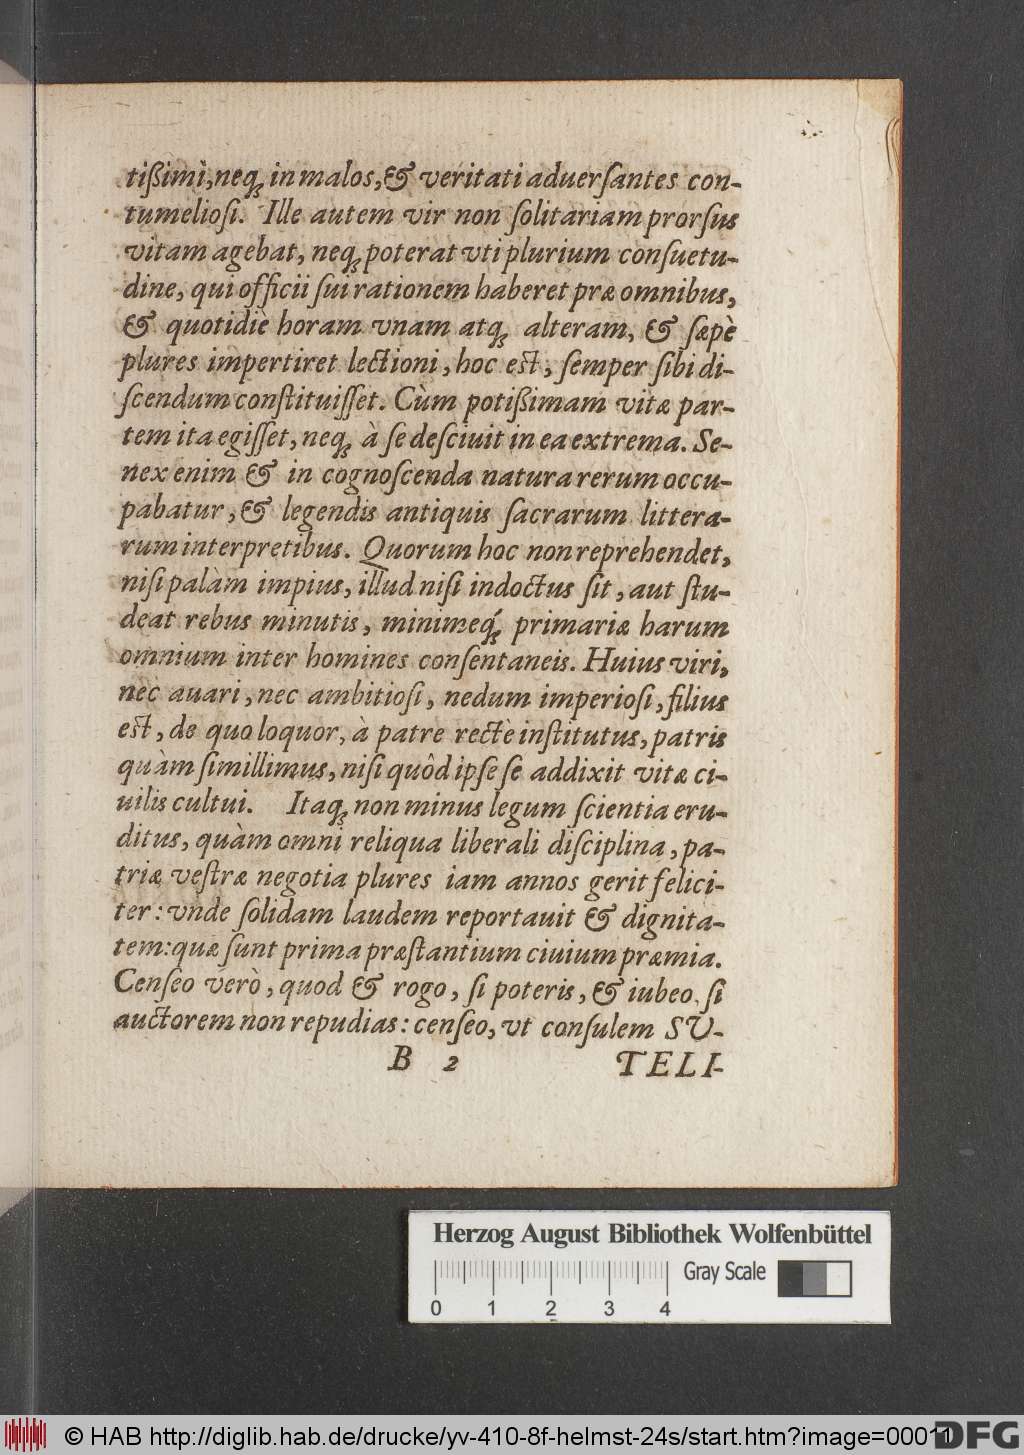 tißimi, neq́; in malos, & veritati aduerſantes con-
tumelioſi. Ille autem vir non ſolitariam prorſus
vitam agebat, neq; poterat vti plurium conſuetu-
dine, qui officii ſui rationem haberet præ omnibus,
& quotidiè horam vnam atq; alteram, & ſæpè
plures impertiret lectioni, hoc est, ſemper ſibi di-
ſcendum conſtituiſſet. Cùm potißimam vitæ par-
tem ita egiſſet, neq; à ſe deſciuit in ea extrema. Se-
nex enim & in cognoſcenda natura rerum occu-
pabatur, & legendis antiquis ſacrarum littera-
rum interpretibus. Quorum hoc non reprehendet,
niſi palàm impius, illud niſi indoctus ſit, aut ſtu-
deat rebus minutis, minimeq́; primariæ harum
omnium inter homines conſentaneis. Huius viri,
nec auari, nec ambitioſi, nedum imperioſi, filius
est, de quo loquor, à patre rectè inſtitutus, patris
quàm ſimillimus, niſi quôd ipſe ſe addixit vitæ ci-
uilis cultui. Itaq; non minus legum ſcientia eru-
ditus, quàm omni reliqua liberali diſciplina, pa-
triæ veſtræ negotia plures iam annos gerit felici-
ter: vnde ſolidam laudem reportauit & dignita-
tem: quæ ſunt prima præſtantium ciuium præmia.
Cenſeo verò, quod & rogo, ſi poteris, & iubeo, ſi
auctorem non repudias: cenſeo, vt conſulem SU-
B 2 TELI-
Herzog August Bibliothek Wolfenbüttel
Gray Scale
0 1 2 3 4
© HAB http://diglib.hab.de/drucke/yv-410-8f-helmst-24s/start.htm?image=00011
DFG